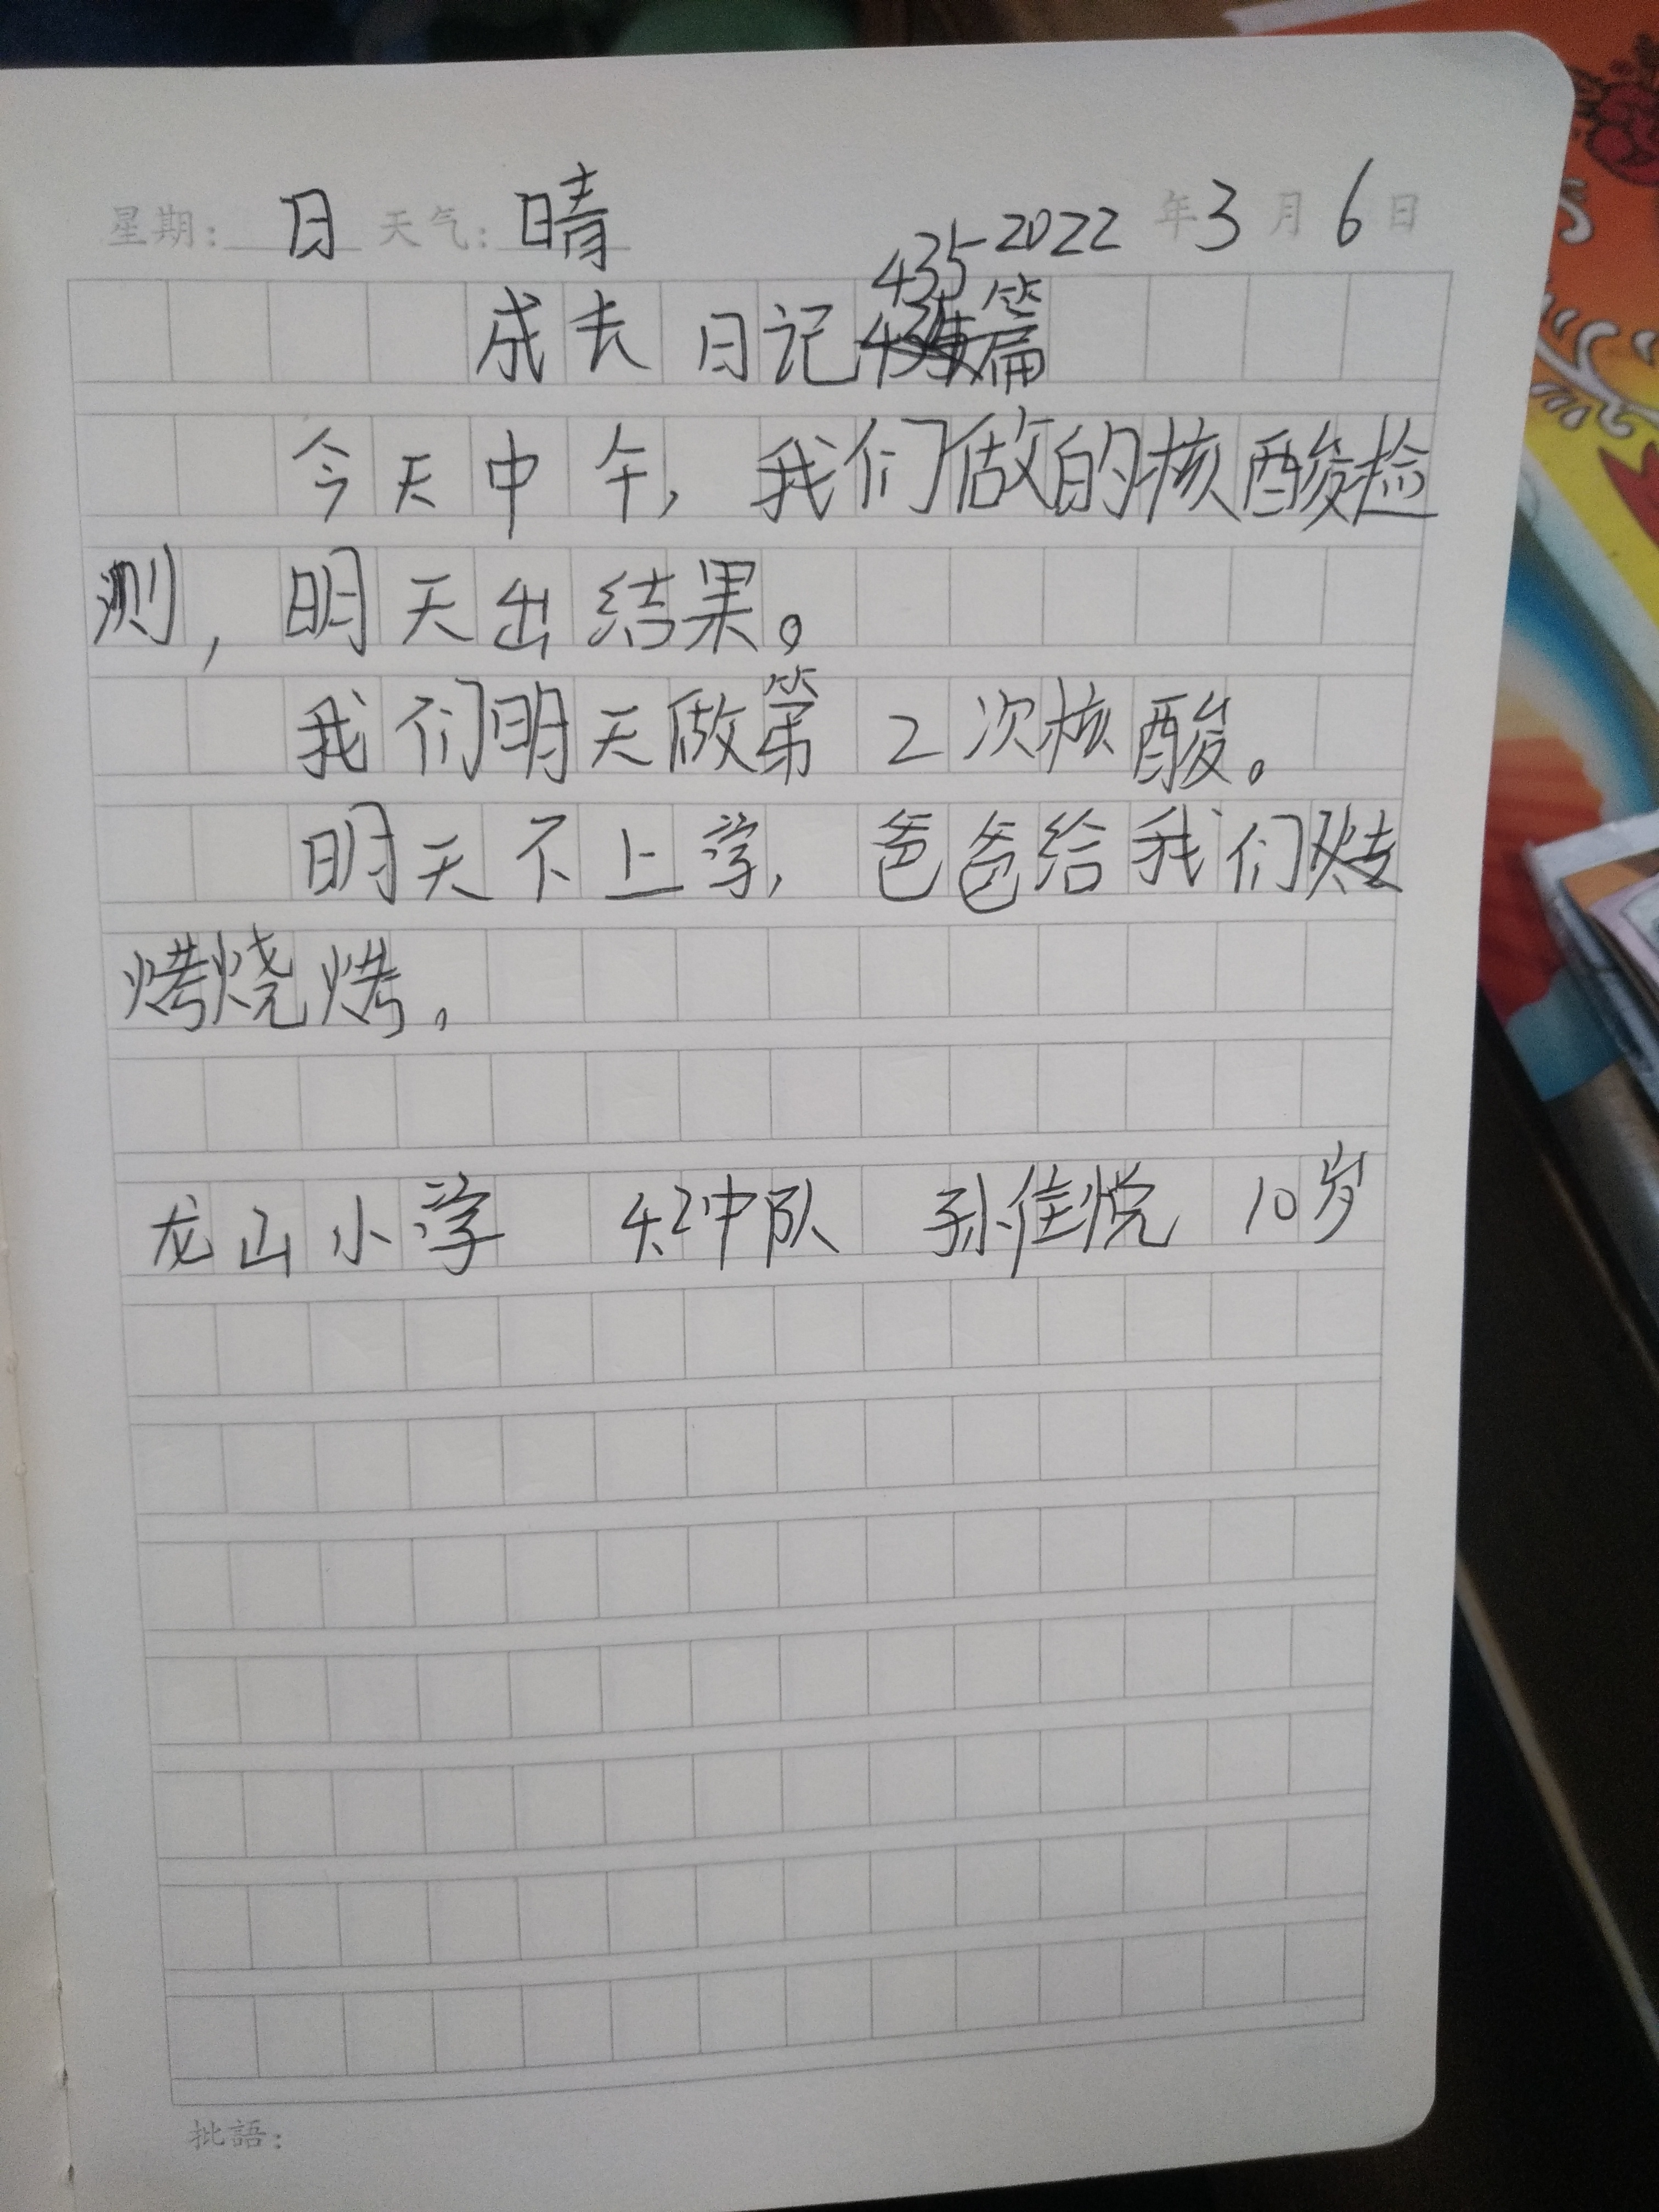 星期: 日 天气: 晴 2022 年 3 月 6 日
435
成长日记篇
今天中午，我们做的核酸检
测，明天出结果。
我们明天做第2次核酸。
明天不上学，爸爸给我们
烤烧烤。
龙山小学 4.2中队 孙佳悦 10岁
批語: